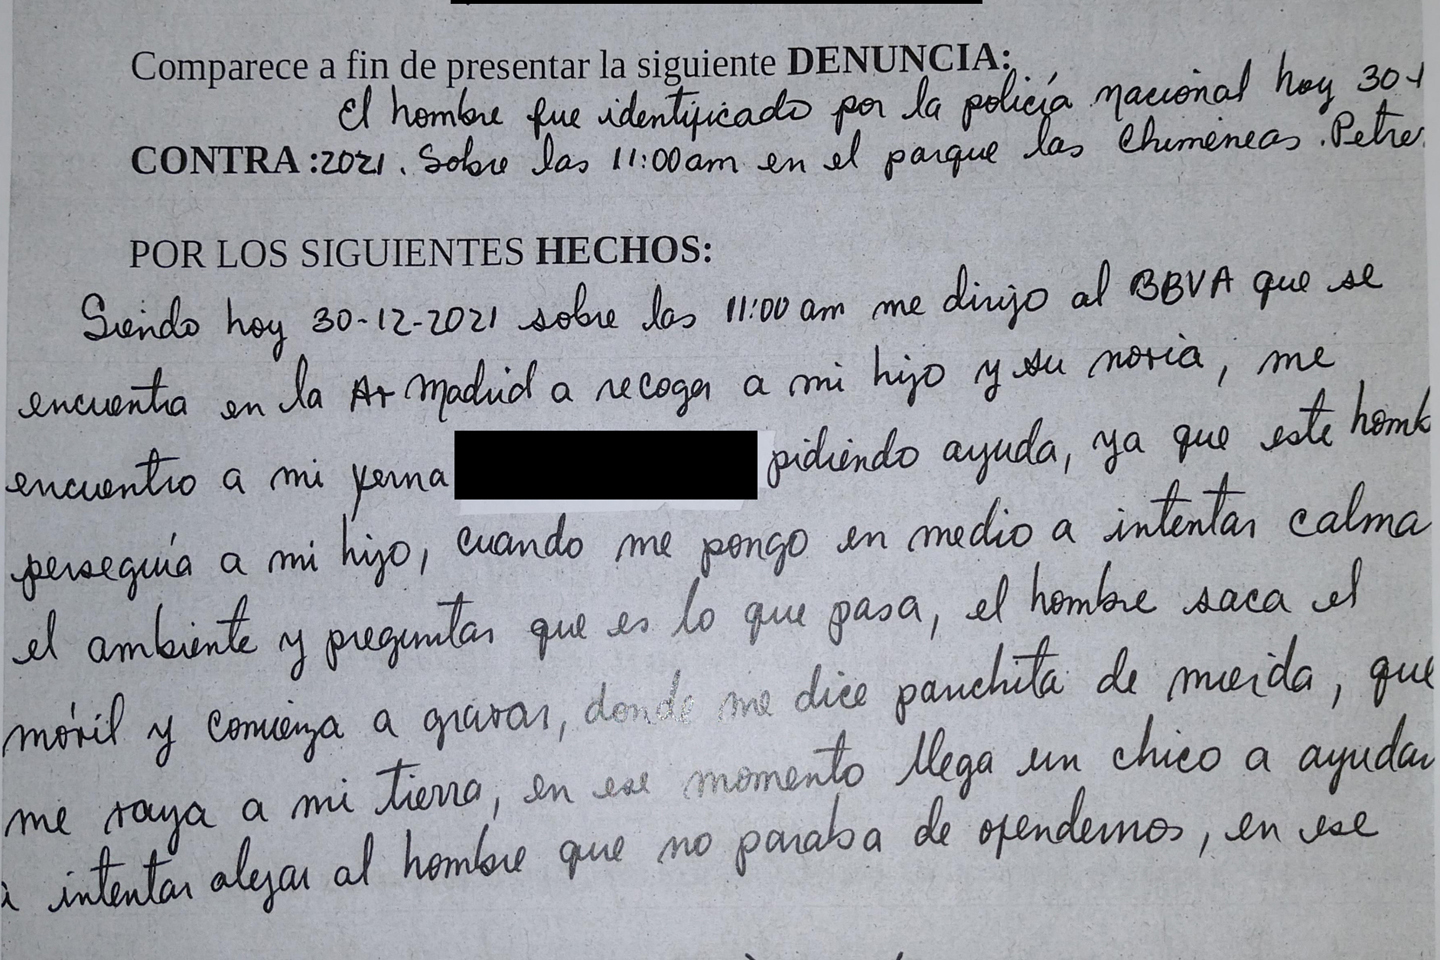 Comparece a fin de presentar la siguiente DENUNCIA:
El hombre fue identificado por la policía nacional hoy 30-1
CONTRA :2021. Sobre las 11:00am en el parque las Chimeneas. Petre
POR LOS SIGUIENTES HECHOS:
Siendo hoy 30-12-2021 sobre las 11:00 am me dirijo al BBVA que se
encuentra en la Av Madrid a recoger a mi hijo y su novia, me
encuentro a mi yerna pidiendo ayuda, ya que este homb
perseguía a mi hijo, cuando me pongo en medio a intentar calma
el ambiente y preguntar que es lo que pasa, el hombre saca el
móvil y comienza a gravar, donde me dice panchita de mierda, que
me vaya a mi tierra, en ese momento llega un chico a ayudar
a intentar alejar al hombre que no paraba de ofendernos, en ese